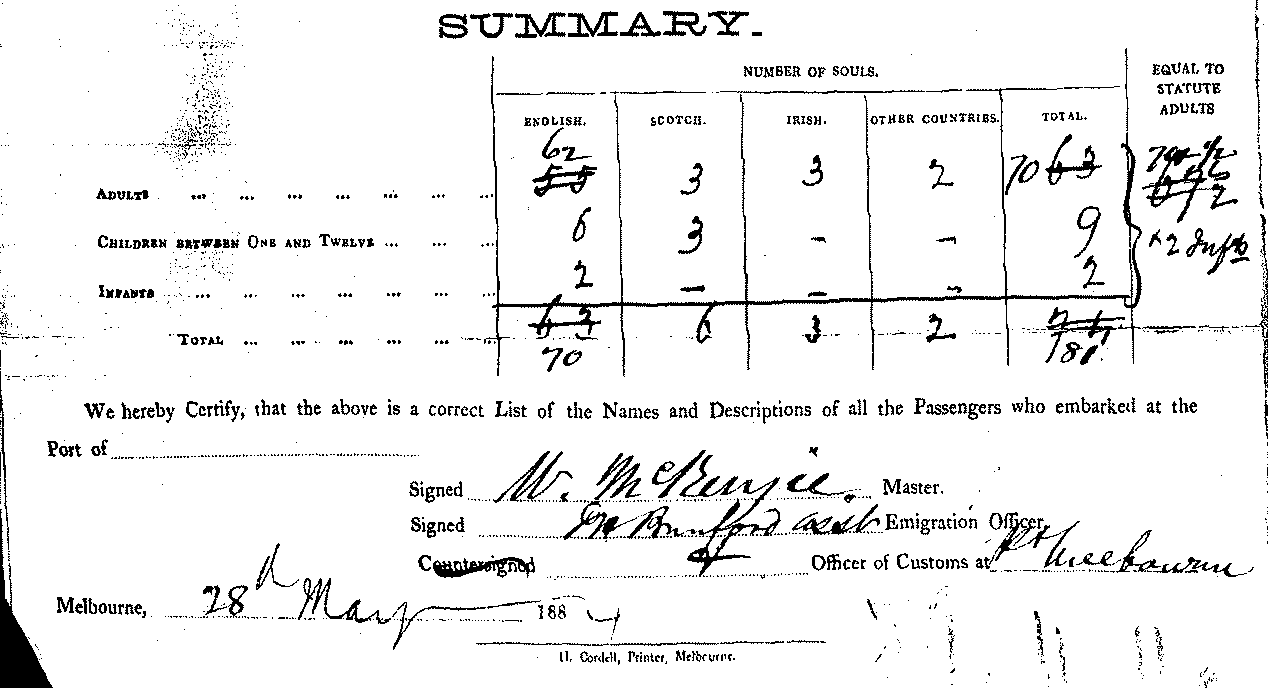 SUMMARY.
NUMBER OF SOULS.
EQUAL TO STATUTE ADULTS
ENGLISH. SCOTCH. IRISH. OTHER COUNTRIES. TOTAL.
62
ADULTS ... ... ... ... ... ... ... 55 3 3 2 70 63
CHILDREN BETWEEN ONE AND TWELVE ... ... ... 6 3 - - 9
2 Infts
INFANTS ... ... ... ... ... ... ... 2 - - - 2
TOTAL ... ... ... ... ... ... 63 6 3 2
70 81
We hereby Certify, that the above is a correct List of the Names and Descriptions of all the Passengers who embarked at the
Port of
Signed W. McKenzie. Master.
Signed asst Emigration Officer.
Countersigned Officer of Customs at Pt Melbourne
Melbourne, 28th May 188
H. Cordell, Printer, Melbourne.